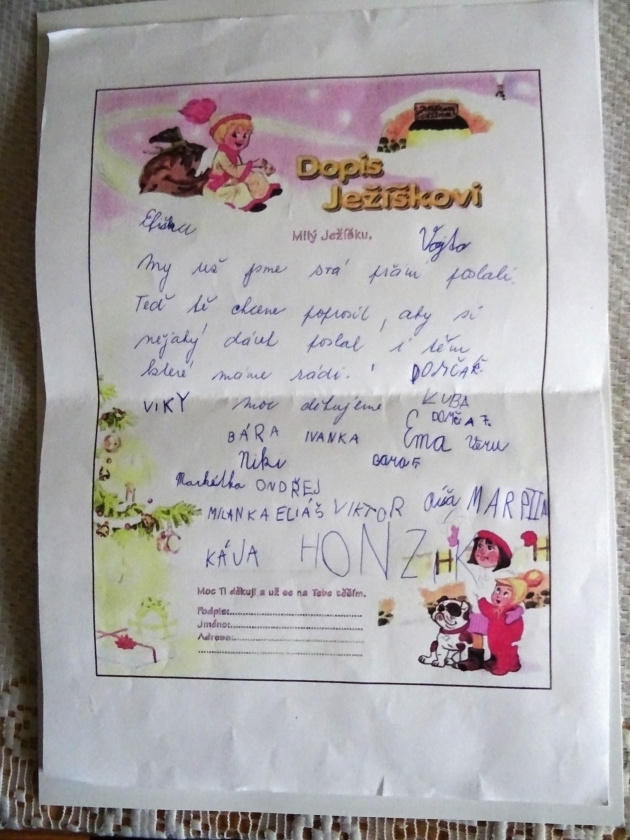 Dopis
Ježíškovi
Eliška
Milý Ježíšku,
Vojta
My už jsme svá přání poslali.
Teď tě chceme poprosit, aby si
nějaký dárek poslal i těm
které máme rádi.
DOMČA Ř.
VIKY moc děkujeme KUBA
DOMČA F.
BÁRA IVANKA Ema Veru
Niki BARA F
Markétka ONDŘEJ
MILANKA ELIÁŠ VIKTOR MARTIN
KÁJA HONZÍK
Moc Ti děkuji a už se na Tebe těším.
Podpis:
Jméno:
Adresa: